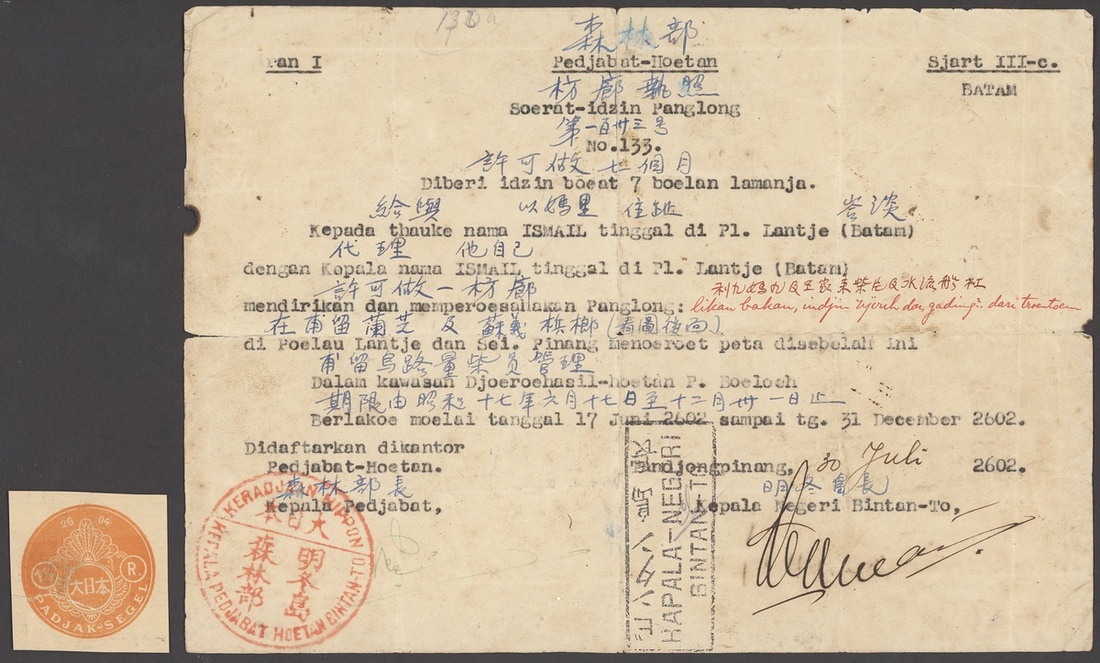 13
森林部
ran I Pedjabat-Hoetan Sjart III-c.
枋廊執照 BATAM
Soerat-idzin Panglong
第一百卅三号
No.133.
許可做七個月
Diberi idzin boeat 7 boelan lamanja.
給與 以媽里 住址 岑淡
Kepada thauke nama ISMAIL tinggal di Pl. Lantje (Batam)
代理 他自己
dengan Kepala nama ISMAIL tinggal di Pl. Lantje (Batam)
許可做一枋廊
mendirikan dan memperoesahakan Panglong:
likan bahan, dari
在甫留蘭芝及蘇義梹榔(看圖後向)
di Poelau Lantje dan Sei. Pinang menoeroet peta disebelah ini
甫留烏路量柴员管理
Dalam kawasan Djoeroehasil-hoetan P. Boeloeh
期限由昭和十七年六月十七日至十二月卅一日止
Berlakoe moelai tanggal 17 Juni 2602 sampai tg. 31 December 2602.
Didaftarkan dikantor
Pedjabat-Hoetan. Tandjongpinang, 30 Juli 2602.
森林部長 明冬會長
Kepala Pedjabat, Kepala Negeri Bintan-To,
KERADJAAN NIPPON
大日本
明冬島
森林部
KEPALA PEDJABAT HOETAN BINTAN-TO
HAPALA-NEGERI
BINTAN-TO
26 04
大日本
R
PADJAK-SEGEL